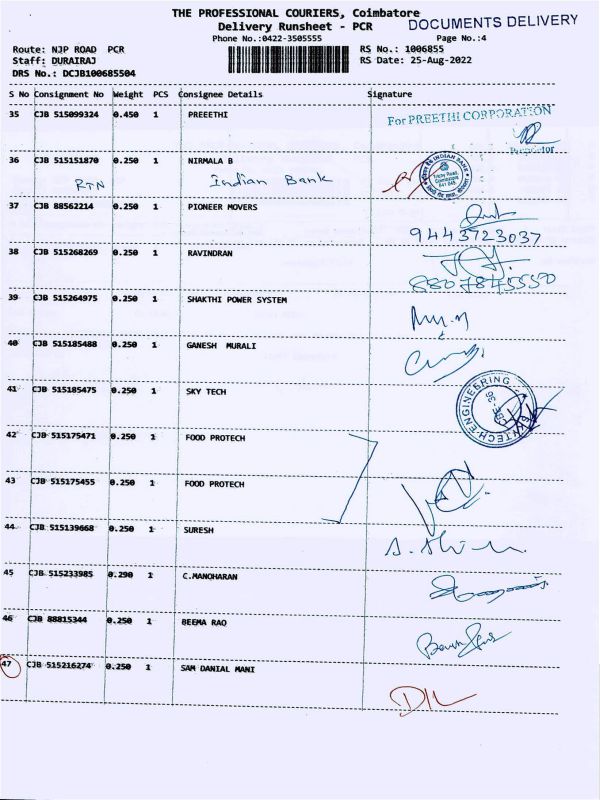 THE PROFESSIONAL COURIERS, Coimbatore
DOCUMENTS DELIVERY
Delivery Runsheet - PCR
Phone No.:0422-3505555 Page No.:4
Route: NJP ROAD PCR RS No.: 1006855
Staff: DURAIRAJ RS Date: 25-Aug-2022
DRS No.: DCJB100685504
S No Consignment No Weight PCS Consignee Details Signature
35 CJB 515099324 0.450 1 PREEETHI
For PREETHI CORPORATION
Proprietor
36 CJB 515151870 0.250 1 NIRMALA B
RTN Indian Bank
INDIAN BANK
Trichy Road,
Coimbatore
641 045
37 CJB 88562214 0.250 1 PIONEER MOVERS
9443723037
38 CJB 515268269 0.250 1 RAVINDRAN
8807845550
39 CJB 515264975 0.250 1 SHAKTHI POWER SYSTEM
40 CJB 515185488 0.250 1 GANESH MURALI
41 CJB 515185475 0.250 1 SKY TECH
ENGINEERING
CBE-36
42 CJB 515175471 0.250 1 FOOD PROTECH
43 CJB 515175455 0.250 1 FOOD PROTECH
44 CJB 515139668 0.250 1 SURESH
45 CJB 515233985 0.290 1 C.MANOHARAN
46 CJB 88815344 0.250 1 BEEMA RAO
47 CJB 515216274 0.250 1 SAM DANIAL MANI